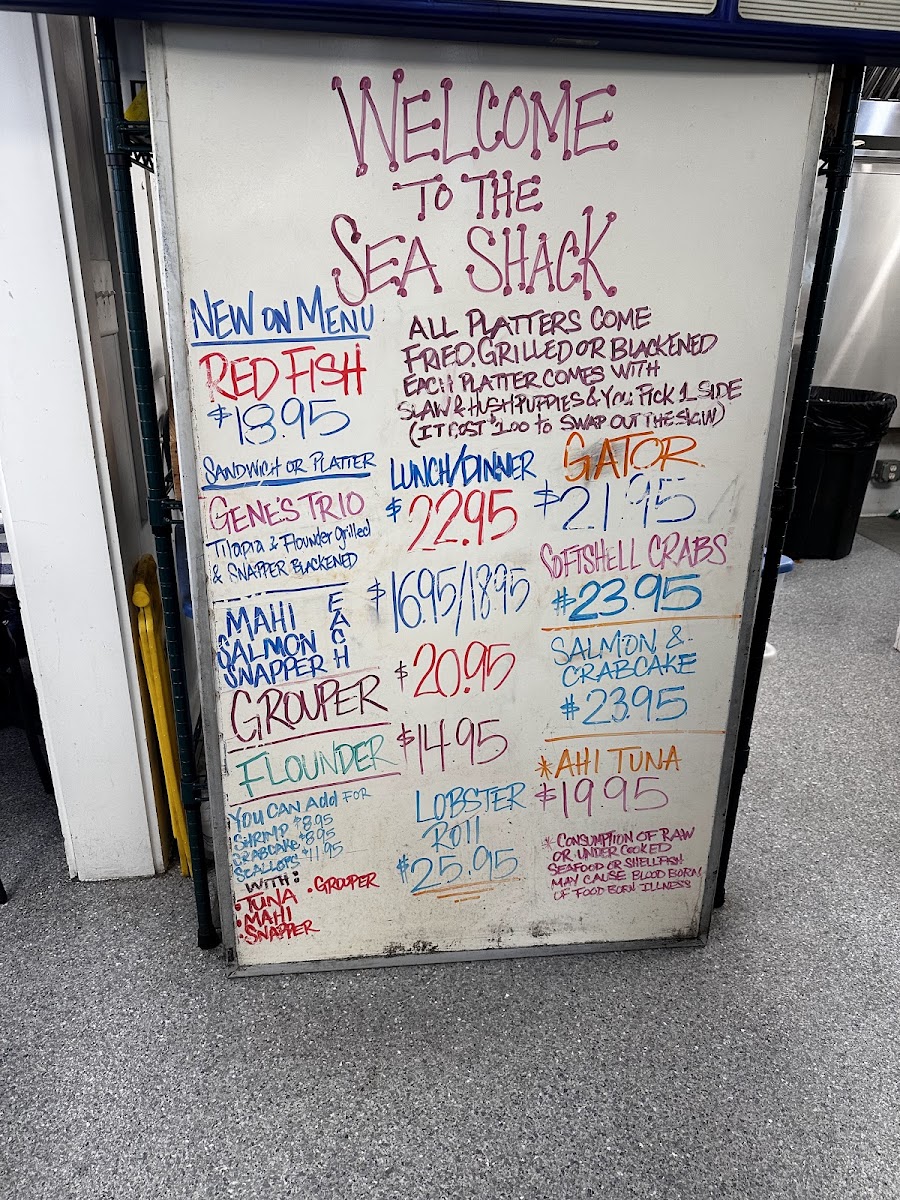 WELCOME
TO THE
SEA SHACK
NEW ON MENU
RED FISH
$18.95
SANDWICH OR PLATTER
ALL PLATTERS COME
FRIED, GRILLED OR BLACKENED
EACH PLATTER COMES WITH
SLAW & HUSHPUPPIES & YOU PICK 1 SIDE
(IT COST $1.00 TO SWAP OUT THE SLAW)
LUNCH/DINNER
GENE'S TRIO
Tilapia & Flounder grilled
& SNAPPER BLACKENED
$22.95
MAHI
SALMON
SNAPPER
EACH
$16.95/18.95
GROUPER
$20.95
FLOUNDER
$14.95
YOU CAN Add FOR
SHRIMP $8.95
CRABCAKE $8.95
SCALLOPS $11.95
WITH:
•TUNA •GROUPER
•MAHI
•SNAPPER
LOBSTER
ROll
$25.95
GATOR
$21.95
SOFTSHELL CRABS
$23.95
SALMON &
CRABCAKE
$23.95
*AHI TUNA
$19.95
* CONSUMPTION OF RAW
OR UNDER COOKED
SEAFOOD OR SHELLFISH
MAY CAUSE BLOOD BORN
OF FOOD BORN ILLNESS